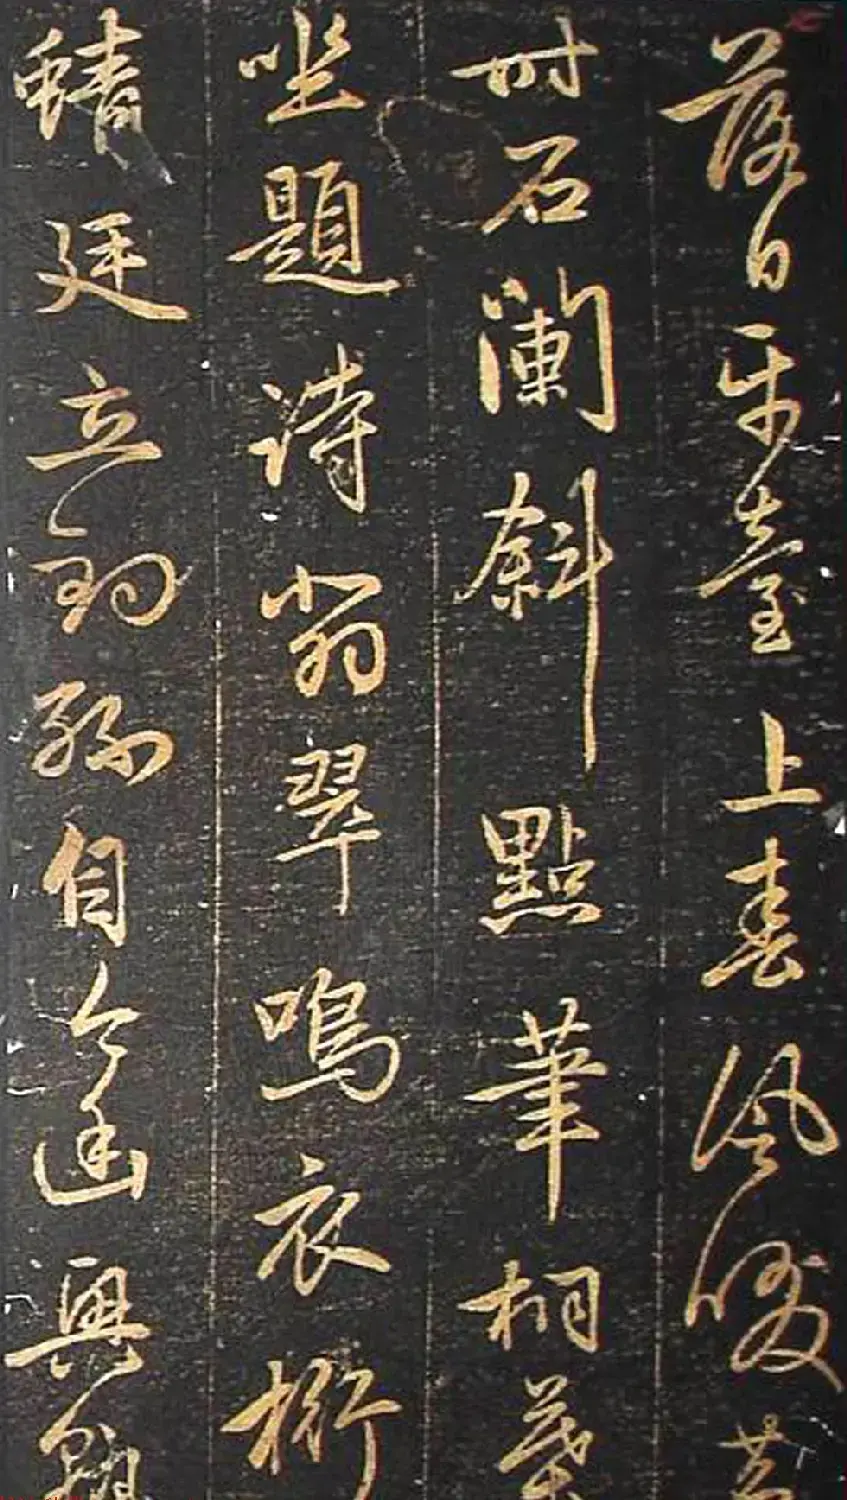 落日平臺上春風啜茗
時石闌斜點筆桐葉
坐題詩翡翠鳴衣桁
蜻蜓立釣絲自今幽興熟